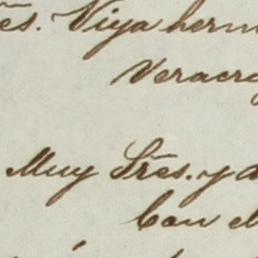 es. Viya herm
Veracr
Muy Sres. y a
Con el